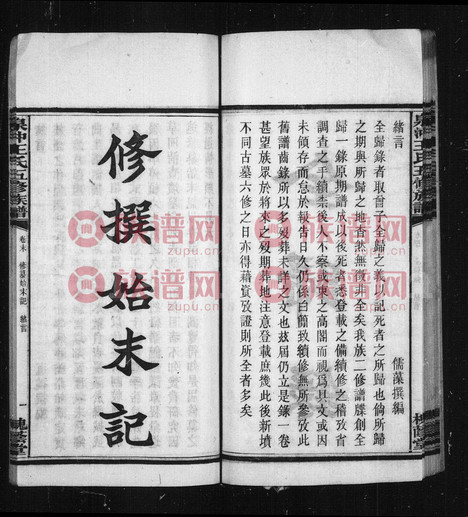 緒言
儒藻撰編
全歸錄者取曾子全歸之義以記死者之所歸也倘所歸
之期與所歸之地杳然無徵非全矣我族二修譜牒創全
歸一錄原期譜成以後死者悉登載之備續修之稽攷省
調查之手續柰後人不察或束之高閣而視為具文或因
未領存而怠於報告日久仍係白簡致續修無所參攷此
舊譜齒錄所以多歿葬未詳之文也茲屆仍立是錄一卷
甚望族眾於將來之歿期葬地注意登載庶幾此後新墳
不同古墓六修之日亦得藉資攷證則所全者多矣
槐蔭堂
泉冲王氏五修族譜
修撰始末記
泉冲王氏五修族譜
卷末
修纂始末記
緒言
一
槐蔭堂
族谱网
zupu.cn